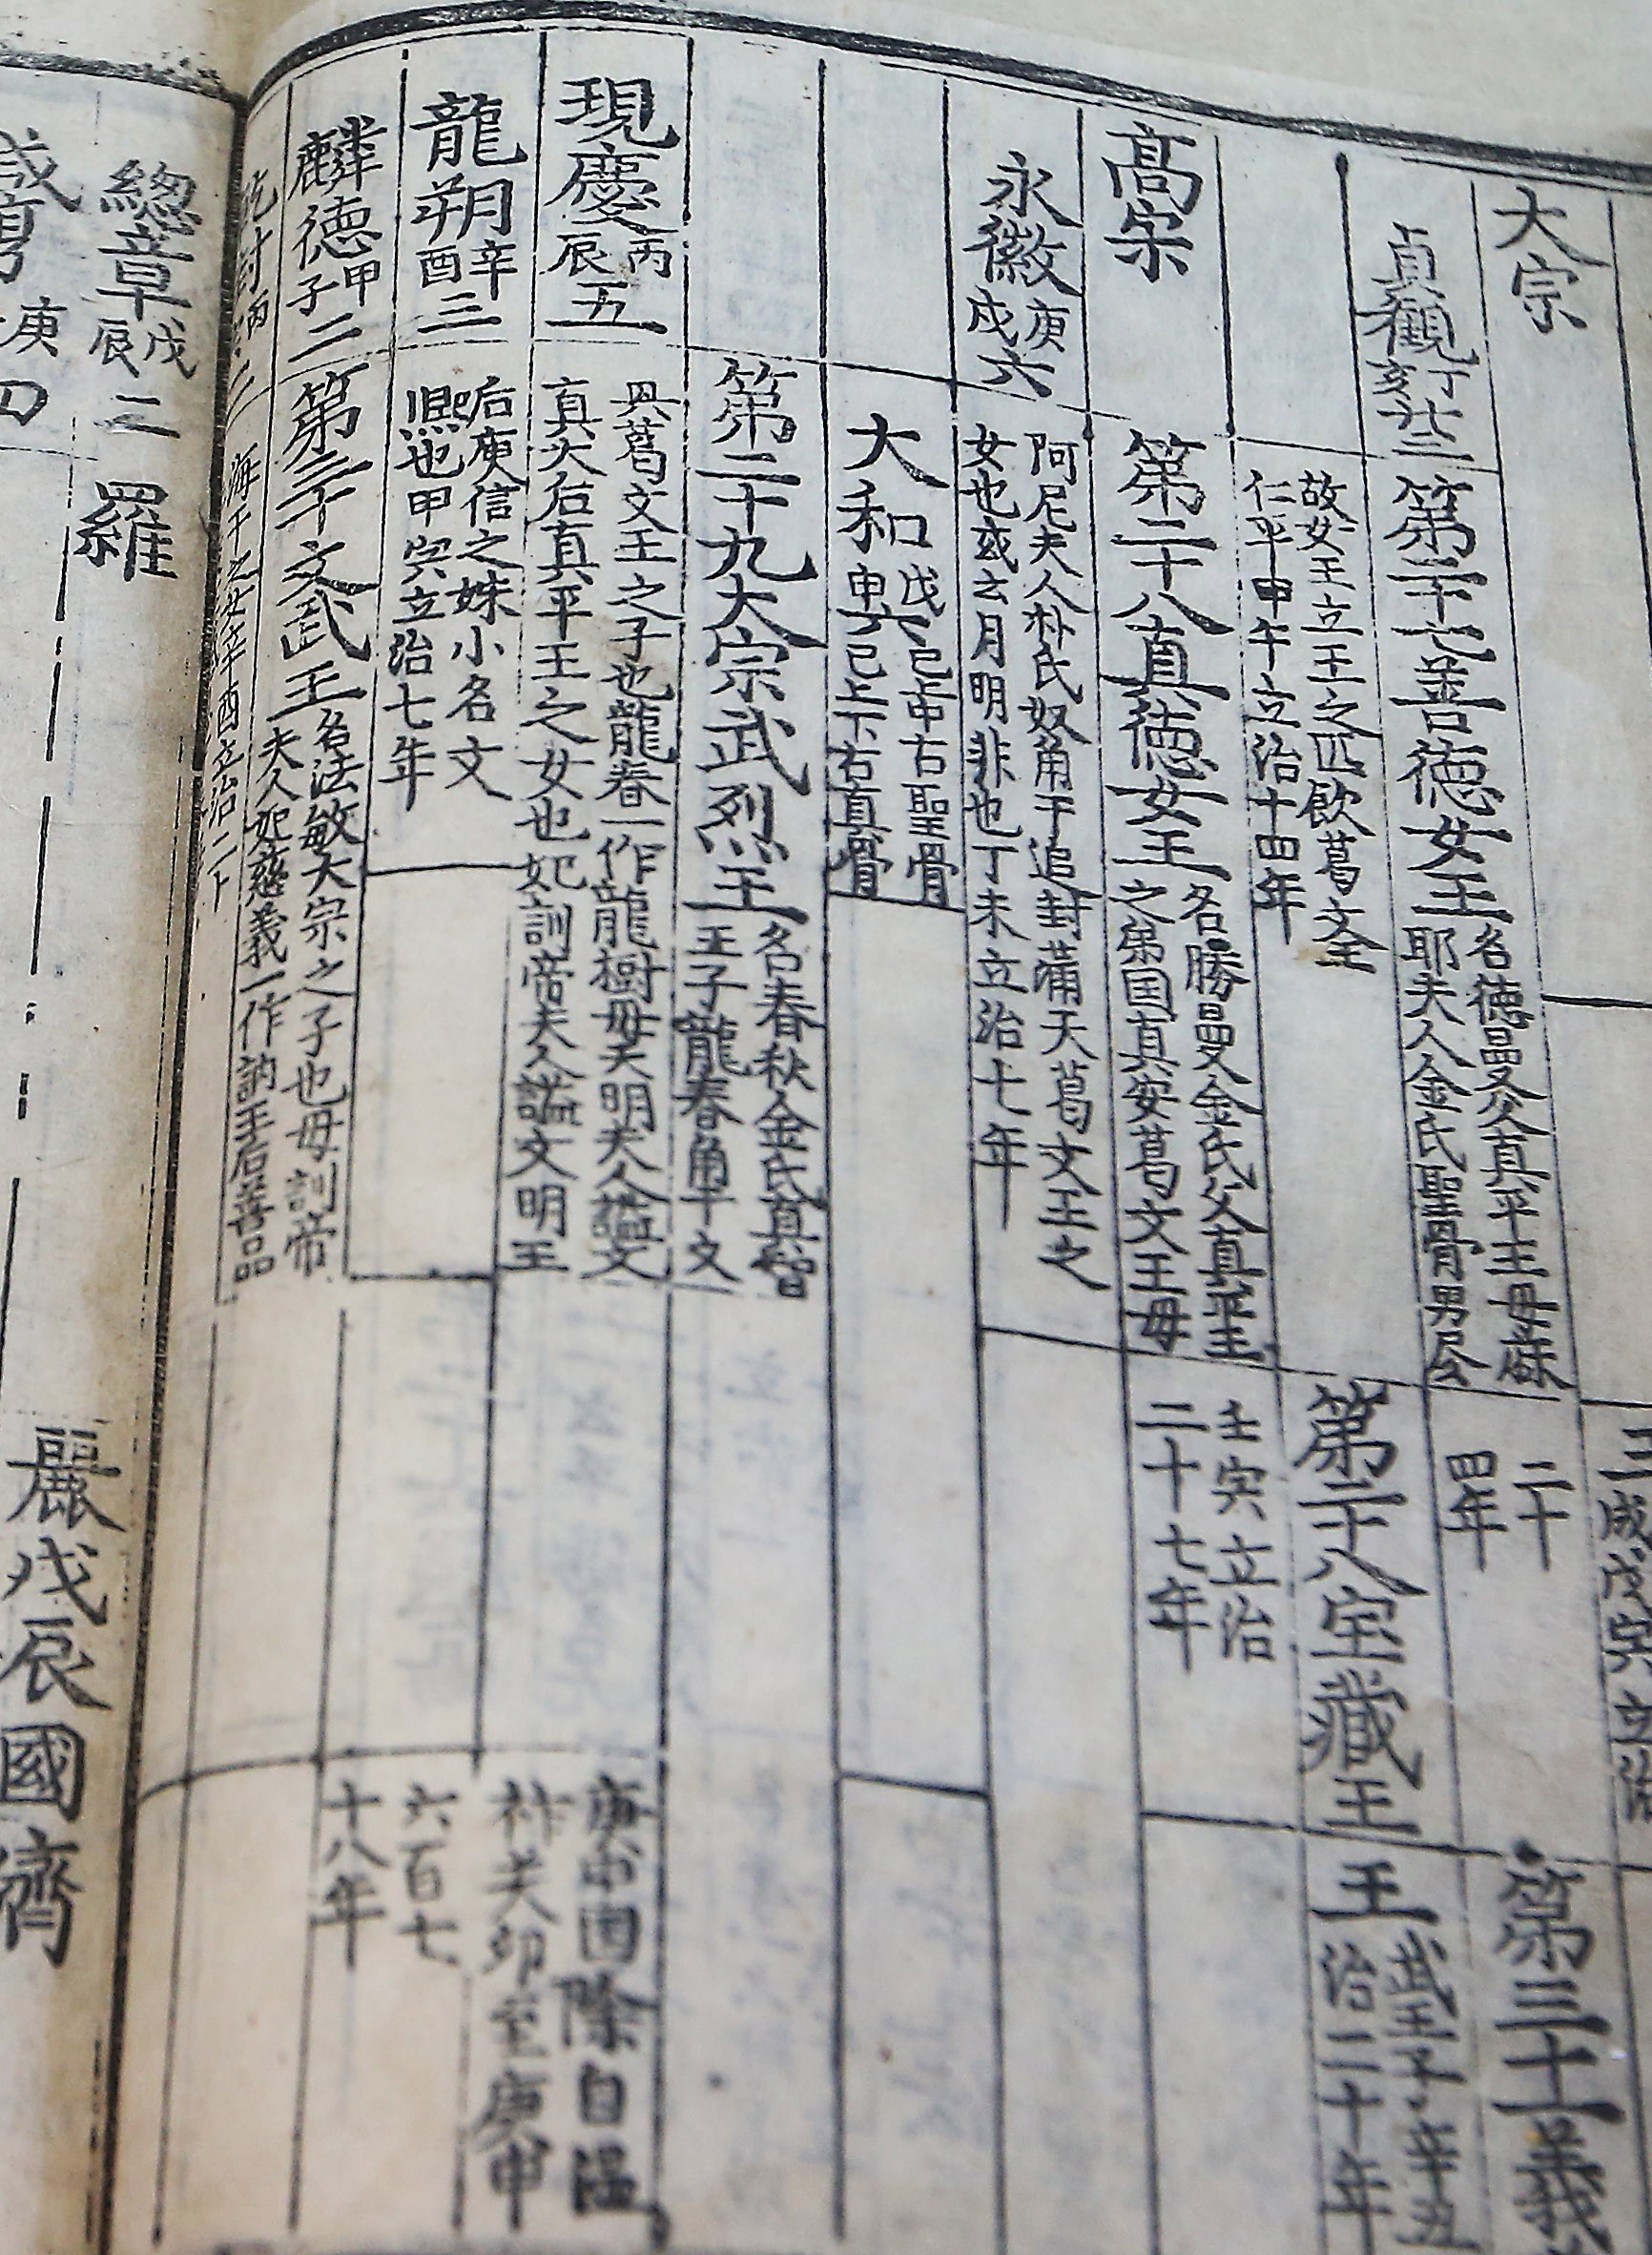 大宗
三
戊寅立治
貞觀丁亥廿三
第二十七善德女王
名德曼父真平王母麻
耶夫人金氏聖骨男尽
二十
四年
第三十一義
故女王立王之匹飲葛文王
仁平甲午立治十四年
第二十八宝藏王
王
武王子辛丑
治二十年
高宗
第二十八真德女王
名勝曼金氏父真平王
之弟国真安葛文王母
壬寅立治
二十七年
永徽庚戌六
阿尼夫人朴氏奴角干追封滿天葛文王之
女也或云月明非也丁未立治七年
大和戊申六
已上中古聖骨
已上下古真骨
第二十九大宗武烈王
名春秋金氏真智
王子龍春角干文
現慶丙辰五
興葛文王之子也龍春一作龍樹母天明夫人諡文
真大后真平王之女也妃訓帝夫人諡文明王
庚申国除自温
祚癸卯至庚申
龍朔辛酉三
后庾信之妹小名文
熙也甲寅立治七年
六百七
十八年
麟德甲子二
第三十文武王
名法敏大宗之子也母訓帝
夫人妃慈義一作訥王后善品
乾封丙寅二
海干之女辛酉立治二十
總章戊辰二
羅
麗戊辰國
咸亨庚四
濟